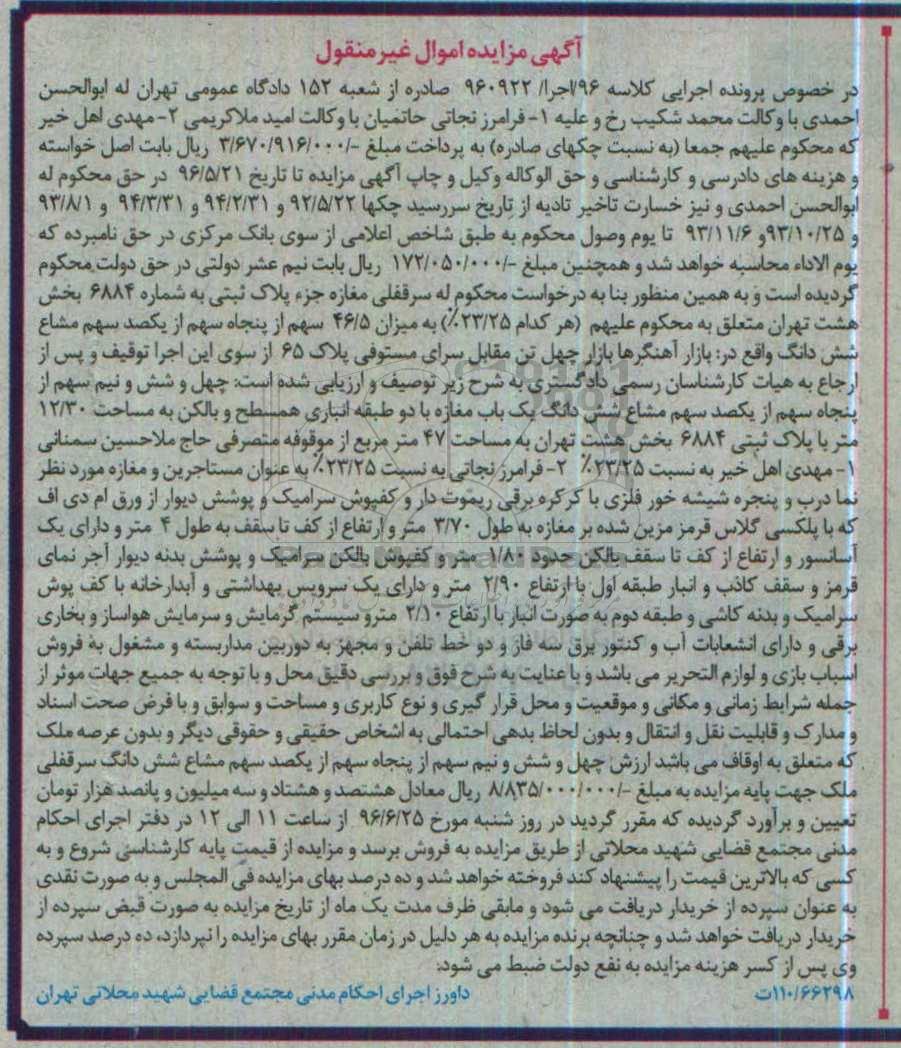 آگهی مزایده اموال غیرمنقول
در خصوص پرونده اجرایی کلاسه ۹۶/اجرا/ ۹۶۰۹۲۲ صادره از شعبه ۱۵۲ دادگاه عمومی تهران له ابوالحسن
احمدی با وکالت محمد شکیب رخ و علیه ۱- فرامرز نجاتی حاتمیان با وکالت امید ملاکریمی ۲- مهدی اهل خیر
که محکوم علیهم جمعا (به نسبت چکهای صادره) به پرداخت مبلغ -/۳/۶۷۰/۹۱۶/۰۰۰ ریال بابت اصل خواسته
و هزینه های دادرسی و کارشناسی و حق الوکاله وکیل و چاپ آگهی مزایده تا تاریخ ۹۶/۵/۲۱ در حق محکوم له
ابوالحسن احمدی و نیز خسارت تاخیر تادیه از تاریخ سررسید چکها ۹۲/۵/۲۲ و ۹۴/۲/۳۱ و ۹۴/۳/۳۱ و ۹۳/۸/۱
و ۹۳/۱۰/۲۵و ۹۳/۱۱/۶ تا یوم وصول محکوم به طبق شاخص اعلامی از سوی بانک مرکزی در حق نامبرده که
یوم الاداء محاسبه خواهد شد و همچنین مبلغ -/۱۷۲/۰۵۰/۰۰۰ ریال بابت نیم عشر دولتی در حق دولت محکوم
گردیده است و به همین منظور بنا به درخواست محکوم له سرقفلی مغازه جزء پلاک ثبتی به شماره ۶۸۸۴ بخش
هشت تهران متعلق به محکوم علیهم (هر کدام ۲۳/۲۵٪) به میزان ۴۶/۵ سهم از پنجاه سهم از یکصد سهم مشاع
شش دانگ واقع در: بازار آهنگرها بازار چهل تن مقابل سرای مستوفی پلاک ۶۵ از سوی این اجرا توقیف و پس از
ارجاع به هیات کارشناسان رسمی دادگستری به شرح زیر توصیف و ارزیابی شده است: چهل و شش و نیم سهم از
پنجاه سهم از یکصد سهم مشاع شش دانگ یک باب مغازه با دو طبقه انباری همسطح و بالکن به مساحت ۱۲/۳۰
متر با پلاک ثبتی ۶۸۸۴ بخش هشت تهران به مساحت ۴۷ متر مربع از موقوفه متصرفی حاج ملاحسین سمنانی
۱- مهدی اهل خیر به نسبت ۲۳/۲۵٪ ۲- فرامرز نجاتی به نسبت ۲۳/۲۵٪ به عنوان مستاجرین و مغازه مورد نظر
نما درب و پنجره شیشه خور فلزی با کرکره برقی ریموت دار و کفپوش سرامیک و پوشش دیوار از ورق ام دی اف
که با پلکسی گلاس قرمز مزین شده بر مغازه به طول ۳/۷۰ متر و ارتفاع از کف تا سقف به طول ۴ متر و دارای یک
آسانسور و ارتفاع از کف تا سقف بالکن حدود ۱/۸۰ متر و کفپوش بالکن سرامیک و پوشش بدنه دیوار آجر نمای
قرمز و سقف کاذب و انبار طبقه اول با ارتفاع ۲/۹۰ متر و دارای یک سرویس بهداشتی و آبدارخانه با کف پوش
سرامیک و بدنه کاشی و طبقه دوم به صورت انبار با ارتفاع ۲/۱۰ مترو سیستم گرمایش و سرمایش هواساز و بخاری
برقی و دارای انشعابات آب و کنتور برق سه فاز و دو خط تلفن و مجهز به دوربین مداربسته و مشغول به فروش
اسباب بازی و لوازم التحریر می باشد و با عنایت به شرح فوق و بررسی دقیق محل و با توجه به جمیع جهات موثر از
جمله شرایط زمانی و مکانی و موقعیت و محل قرار گیری و نوع کاربری و مساحت و سوابق و با فرض صحت اسناد
و مدارک و قابلیت نقل و انتقال و بدون لحاظ بدهی احتمالی به اشخاص حقیقی و حقوقی دیگر و بدون عرصه ملک
که متعلق به اوقاف می باشد ارزش چهل و شش و نیم سهم از پنجاه سهم از یکصد سهم مشاع شش دانگ سرقفلی
ملک جهت پایه مزایده به مبلغ -/۸/۸۳۵/۰۰۰/۰۰۰ ریال معادل هشتصد و هشتاد و سه میلیون و پانصد هزار تومان
تعیین و برآورد گردیده که مقرر گردید در روز شنبه مورخ ۹۶/۶/۲۵ از ساعت ۱۱ الی ۱۲ در دفتر اجرای احکام
مدنی مجتمع قضایی شهید محلاتی از طریق مزایده به فروش برسد و مزایده از قیمت پایه کارشناسی شروع و به
کسی که بالاترین قیمت را پیشنهاد کند فروخته خواهد شد و ده درصد بهای مزایده فی المجلس و به صورت نقدی
به عنوان سپرده از خریدار دریافت می شود و مابقی ظرف مدت یک ماه از تاریخ مزایده به صورت قبض سپرده از
خریدار دریافت خواهد شد و چنانچه برنده مزایده به هر دلیل در زمان مقرر بهای مزایده را نپردازد، ده درصد سپرده
وی پس از کسر هزینه مزایده به نفع دولت ضبط می شود.
۱۱۰/۶۶۲۹۸ت داورز اجرای احکام مدنی مجتمع قضایی شهید محلاتی تهران